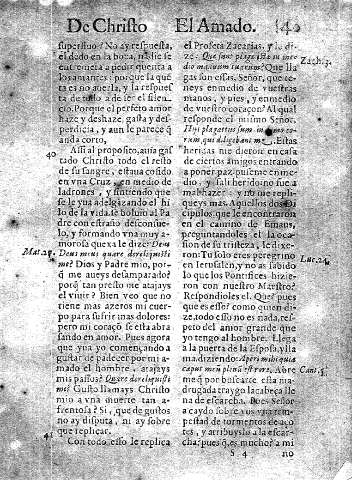 De Christo El Amado. 140
superfluo? No ay respuesta,
el dedo en la boca, nadie se
entremeta a pedir quenta a
los amantes: porque la quē
ta es no auerla, y la respues
ta de todo a de ser el silen-
cio. Porque el perfeto amor
haze y deshaze, gasta y des-
perdicia, y aun le parece q̄
anda corto,
40
Assi al proposito, auia gas
tado Christo todo el resto
de su sangre, estaua cosido
en vna Cruz, en medio de
ladrones, y sintiendo que
se le yua adelgazando el hi
lo de la vida, se boluio al Pa
dre con estraño desconsue-
lo, y formando vna muy a-
morosa quexa le dize: Deus
Mat. 27.
Deus meus quare dereliquisti
me? Dios y Padre mio, por-
q̄ me aueys desamparado?
porq̄ tan presto me atajays
el viuir? Bien veo que no
tiene mas azeros mi cuer-
po para sufrir mas dolores:
pero mi coraçō se esta abra
sando en amor. Pues agora
que yua yo comenzando a
gustar de padecer por mi a-
mado el hombre, atajays
mis passos? Quare dereliquisti
me? Gusto llamays Christo
mio a vna muerte tan a-
frentosa? Si, que de gustos
no ay disputa, ni ay sobre
que replicar.
41
Con todo esso le replica
el Profeta Zacarias, y le di-
ze: Quæ sunt plagæ istæ in me
dio manuum tuarum? Que lla
Zach. 13.
gas son essas, Señor, que te-
neys en medio de vuestras
manos, y pies, y en medio
de vuestro coraçon? Al qual
responde el mismo Señor.
His plagatus sum in domo eo-
rum, qui diligebant me. Estas
heridas me dieron en casa
de ciertos amigos entrando
a poner paz, puseme en me-
dio, y salí herido: no fue a
mal hazer, y no me repli-
queys mas. Aquellos dos Di
cipulos que le encontraron
en el camino de Emaus,
preguntandoles el la oca-
sion de su tristeza, le dixe-
ron: Tu solo eres peregrino
Luc. 24.
en Ierusalen, y no as sabido
lo que los Pontifices hizie-
ron con nuestro Maestro?
Respondioles el. Que? pues
que es esse? como quien di-
ze, todo esso no es nada, res-
peto del amor grande que
yo tengo al hombre. Llega
a la puerta de la Esposa, y lla
ma diziendo: Aperi mihi quia
caput meū plenū est rore, Abre
Cant. 5.
me q̄ por buscarte esta ma-
drugada traygo la cabeça lle
na de escarcha. Pues Señor
a caydo sobre vos vna tem-
pestad de tormentos de aço
tes, y atribuyslo a la escar-
cha? pues q̄ es mucho? a mi
S 4 no